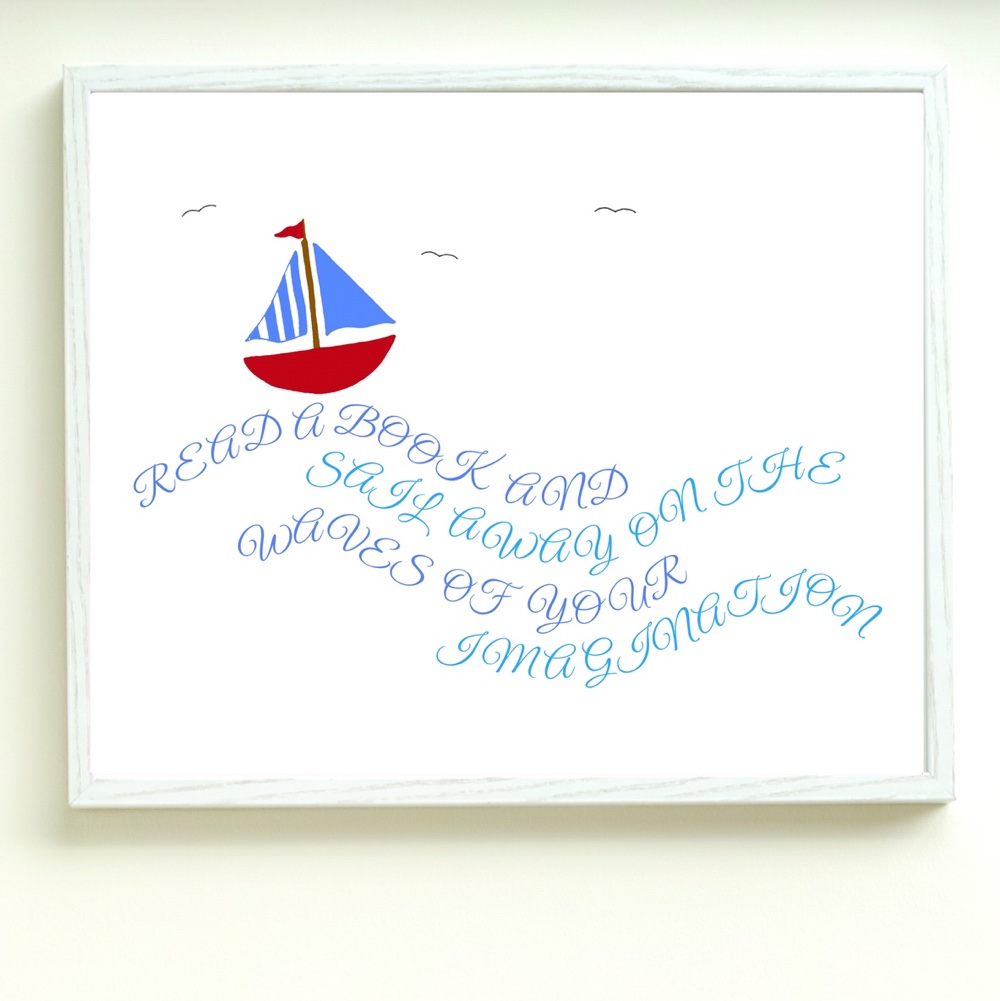 READ A BOOK AND
SAIL AWAY ON THE
WAVES OF YOUR
IMAGINATION